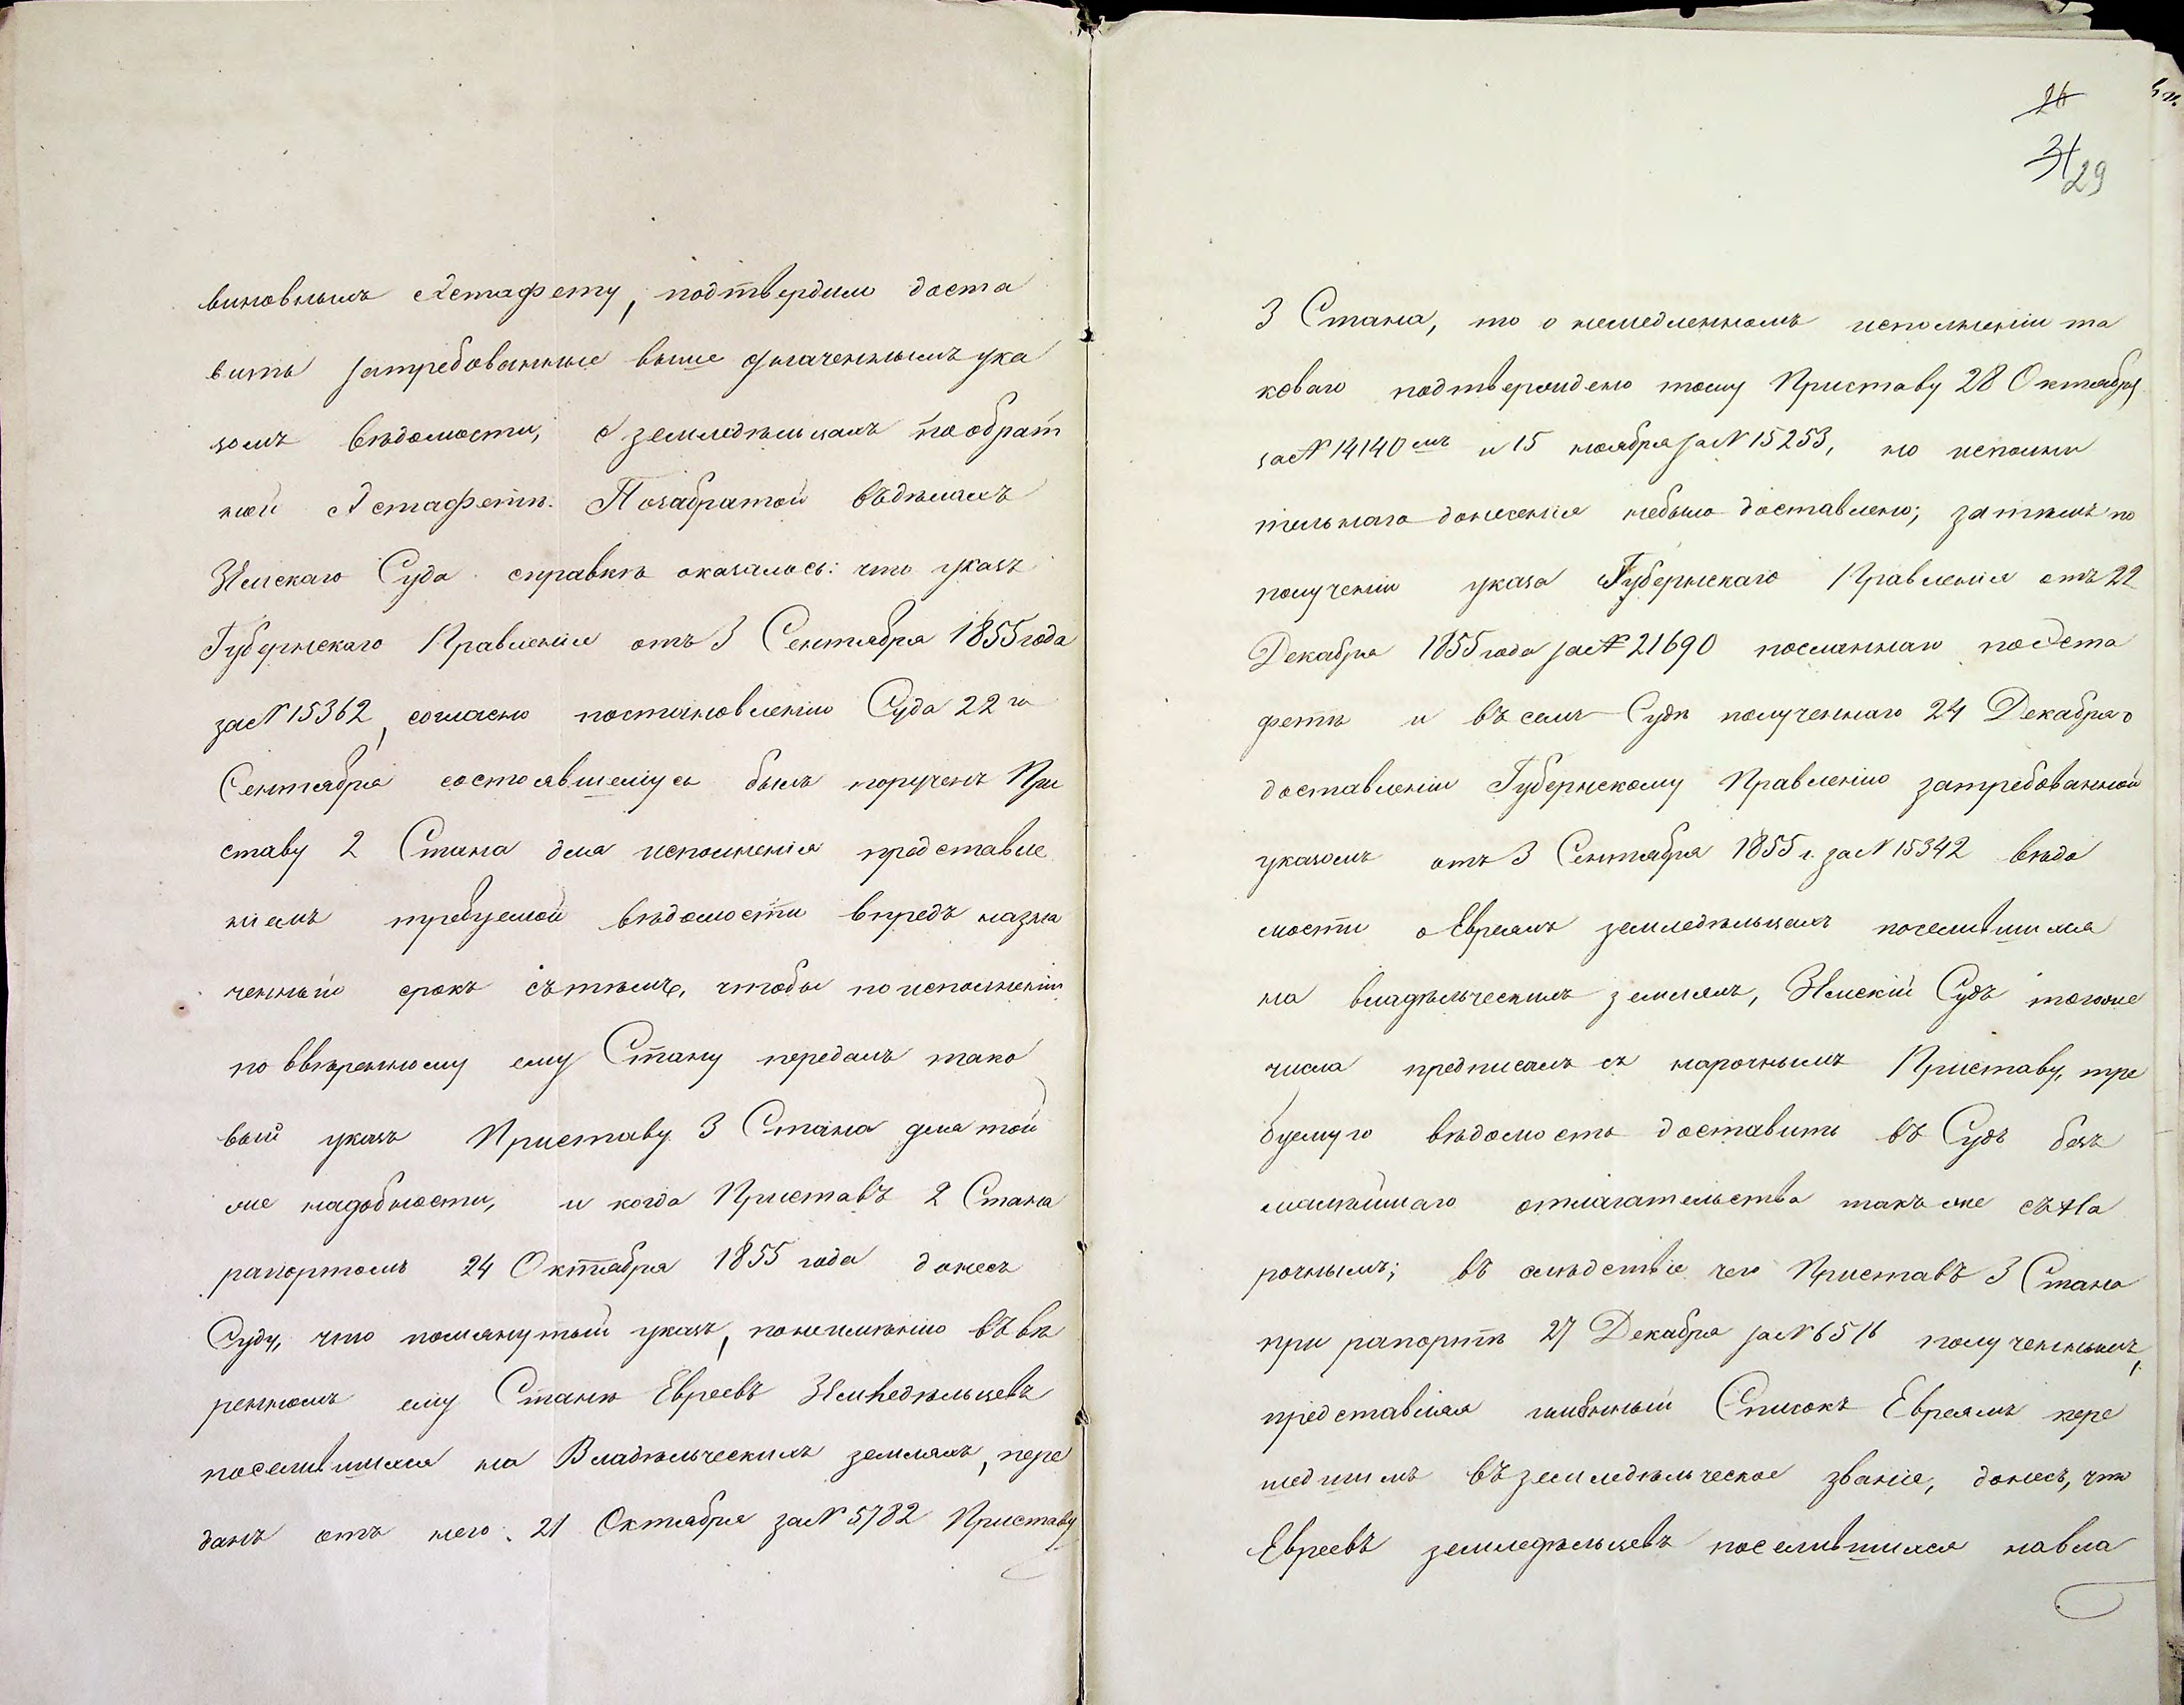 виновнымъ Астафету, подтвердило доста
вить затребованные выше означеннымъ ука
зомъ вѣдомости, о земледѣльцахъ по обрат
ной Астафетѣ. По забратой въ дѣлахъ
Земскаго Суда справкѣ оказалось: что указъ
Губернскаго Правленія отъ 3 Сентября 1855 года
за № 15362, согласно постановленію Суда 22 го
Сентября состоявшемуся былъ порученъ При
ставу 2 Стана для исполненія представле
ніемъ требуемой вѣдомости впредъ назна
ченный срокъ съ тѣмъ, чтобы по исполненіи
по ввѣренному ему Стану передалъ тако
вый указъ Приставу 3 Стана для той
же надобности, и когда Приставъ 2 Стана
рапортомъ 24 Октября 1855 года донесъ
Суду, что помянутый указъ, по неимѣнію въ ввѣ
ренномъ ему Станѣ Евреевъ Земледѣльцевъ
поселившихся на Владѣльческихъ земляхъ, пере
данъ отъ него 21 Октября за № 5782 Приставу
26
31
29
3 Стана, то о немедленномъ исполненіи та
коваго подтверждено тому Приставу 28 Октября
за № 14140 мъ и 15 ноября за № 15253, но исполни
тельнаго донесенія небыло доставлено; за тѣмъ по
полученіи указа Губернскаго Правленія отъ 22
Декабря 1855 года за № 21690 посланнаго по Аста
фетѣ и въ семъ Судѣ полученнаго 24 Декабря о
доставленіи Губернскому Правленію затребованной
указомъ отъ 3 Сентября 1855 г. за № 15342 вѣдо
мости о Евреяхъ земледѣльцахъ поселившихся
на владѣльческихъ земляхъ, Земскій Судъ тогоже
числа предписалъ съ нарочнымъ Приставу, тре
буемую вѣдомость доставить въ Судъ безъ
малѣйшаго отлагательства такъ же съ На
рочнымъ; въ слѣдствіе чего Приставъ 3 Стана
при рапортѣ 27 Декабря за № 6516 полученнымъ,
представляя имянный Списокъ Евреямъ пере
шедшимъ въ земледѣльческое званіе, донесъ, что
Евреевъ земледѣльцевъ поселившихся на вла